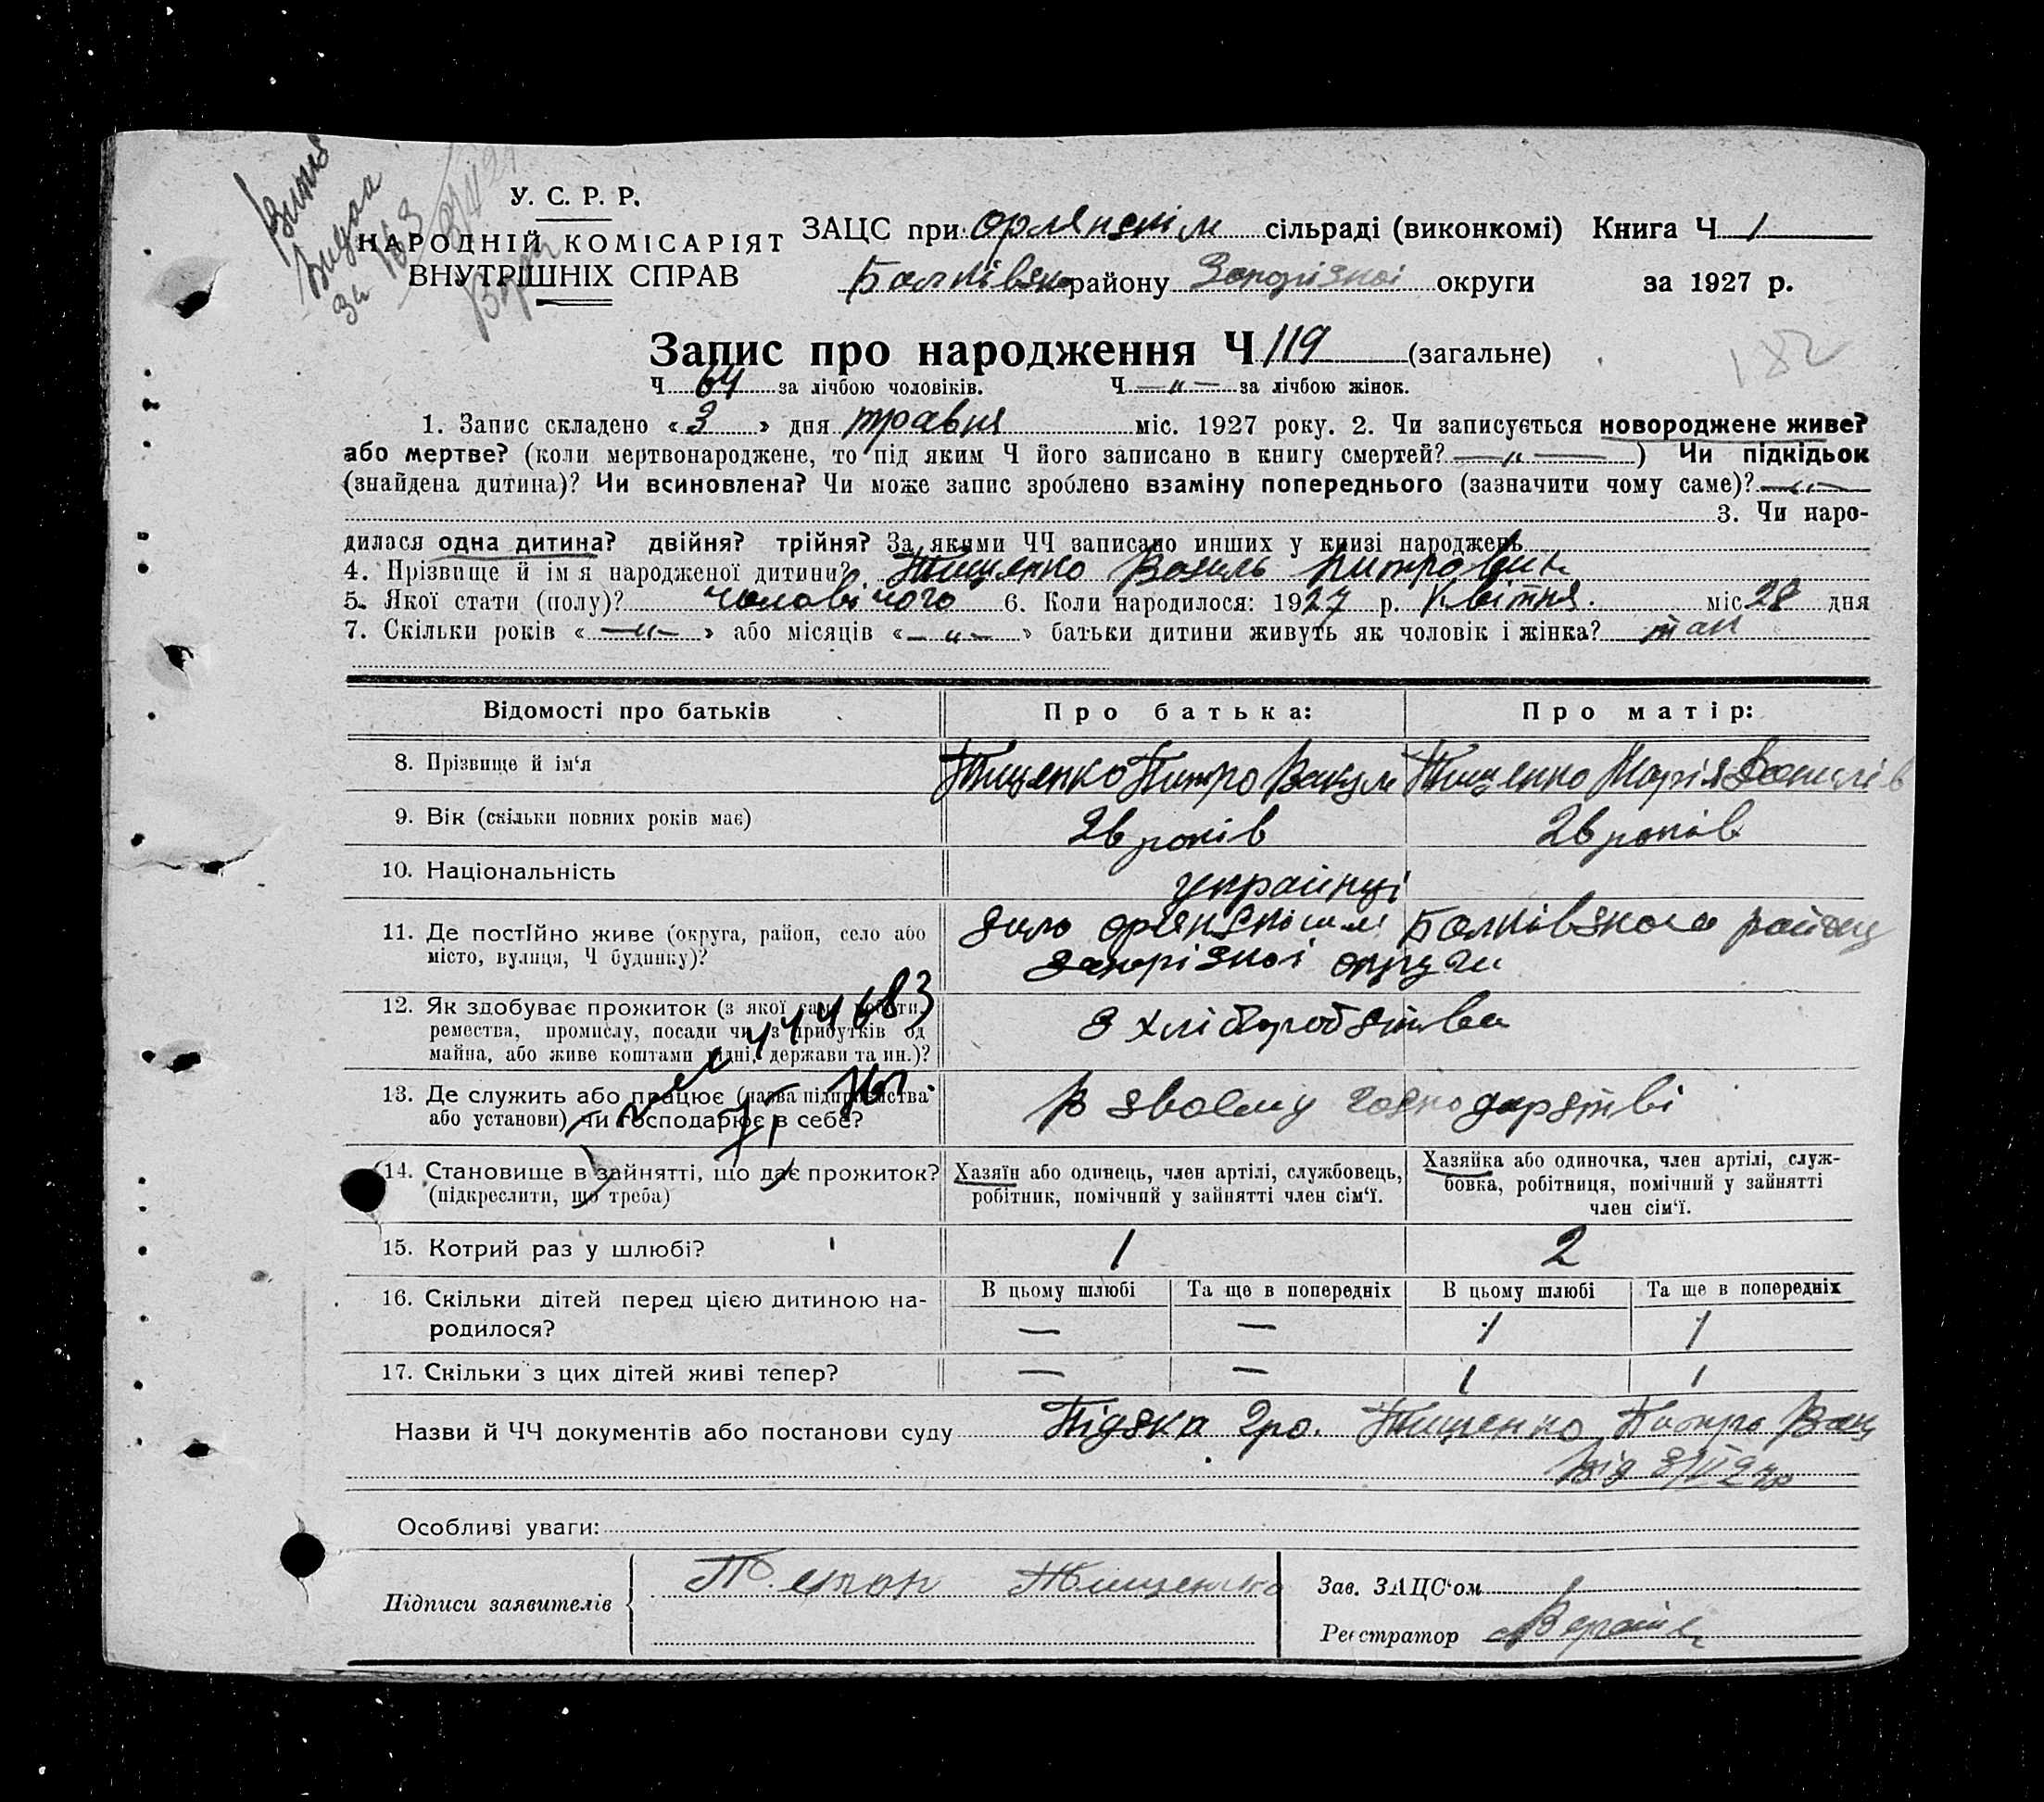 У. С. Р. Р.
НАРОДНІЙ КОМІСАРІЯТ
ВНУТРІШНІХ СПРАВ
ЗАЦС при орлянскім сільраді (виконкомі) Книга Ч 1
Балківско району Запорізкої округи за 1927 р.
Запис про народження Ч 119 (загальне)
182
Ч 64 за лічбою чоловіків. Ч — " — за лічбою жінок.
1. Запис складено «3» дня травня міс. 1927 року. 2. Чи записується новороджене живе?
або мертве? (коли мертвонароджене, то під яким Ч його записано в книгу смертей? — " —) Чи підкідьок
(знайдена дитина)? Чи всиновлена? Чи може запис зроблено взаміну попереднього (зазначити чому саме)? — " —
3. Чи наро-
дилася одна дитина? двійня? трійня? За якими ЧЧ записано инших у книзі народжень
4. Прізвище й ім я народженої дитини? Тищенко Василь Питрович
5. Якої стати (полу)? чоловічого 6. Коли народилося: 1927 р. квітня міс 28 дня
7. Скільки років « — " — » або місяців « — " — » батьки дитини живуть як чоловік і жінка? так
Відомості про батьків Про батька: Про матір:
8. Прізвище й ім'я Тищенко Питро Вакул Тищенко Марія Василів
9. Вік (скільки повних років має) 26 років 26 років
10. Національність українці
11. Де постІйно живе (округа, район, село або
місто, вулиця, Ч будинку)?
Балківского району
запорізкої округи
12. Як здобуває прожиток (з якої саме роботи,
ремества, промислу, посади чи з прибутків од
майна, або живе коштами рідні, держави та ин.)?
з хліборобства
13. Де служить або працює (назва підприємства
або установи) чи господарює в себе?
В своєму господарстві
14. Становище в зайнятті, що дає прожиток?
(підкреслити, що треба)
Хазяїн або одинець, член артілі, службовець,
робітник, помічний у зайнятті член сім'ї.
Хазяйка або одиночка, член артілі, служ-
бовка, робітниця, помічний у зайнятті
член сім'ї.
15. Котрий раз у шлюбі? 1 2
16. Скільки дітей перед цією дитиною на-
родилося?
В цьому шлюбі Та ще в попередніх В цьому шлюбі Та ще в попередніх
— — 1 1
17. Скільки з цих дітей живі тепер? — — 1 1
Назви й ЧЧ документів або постанови суду Тищенко Питро Вак
Особливі уваги:
Підписи заявителів Тищенко
Зав. ЗАЦС'ом
Реєстратор